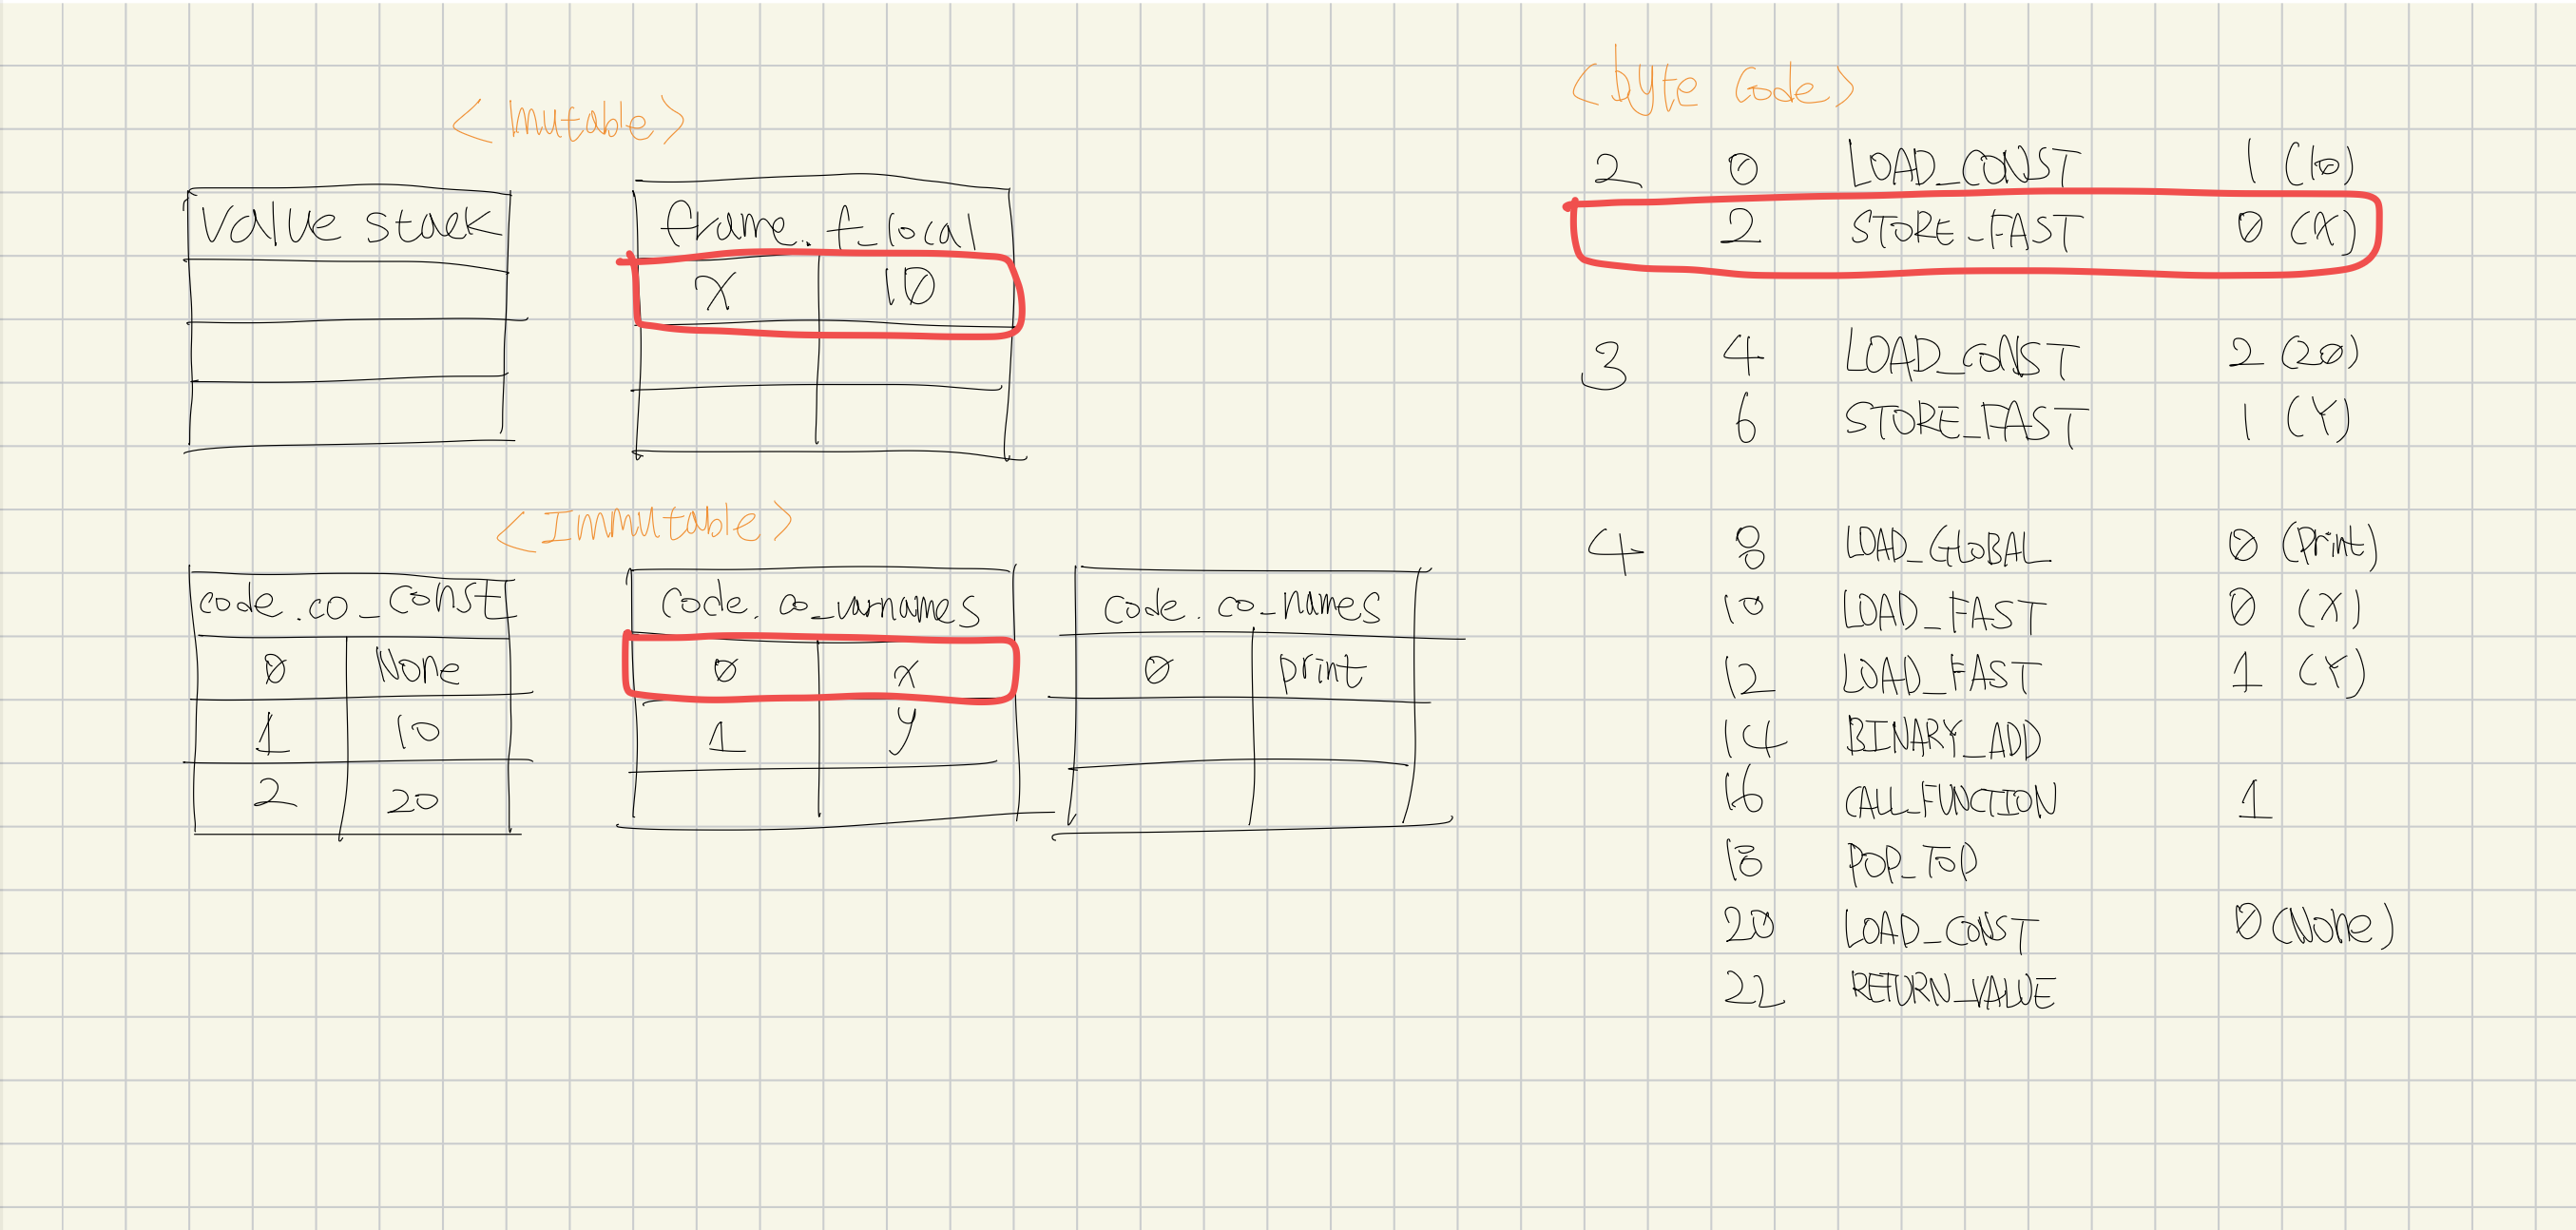 <mutable>
value stack
frame.f_local
x 10
<Immutable>
code.co_const
0 None
1 10
2 20
code.co_varnames
0 x
1 y
code.co_names
0 print
<byte code>
2 0 LOAD_CONST 1 (10)
2 STORE_FAST 0 (X)
3 4 LOAD_CONST 2 (20)
6 STORE_FAST 1 (Y)
4 8 LOAD_GLOBAL 0 (print)
10 LOAD_FAST 0 (X)
12 LOAD_FAST 1 (Y)
14 BINARY_ADD
16 CALL_FUNCTION 1
18 POP_TOP
20 LOAD_CONST 0 (None)
22 RETURN_VALUE